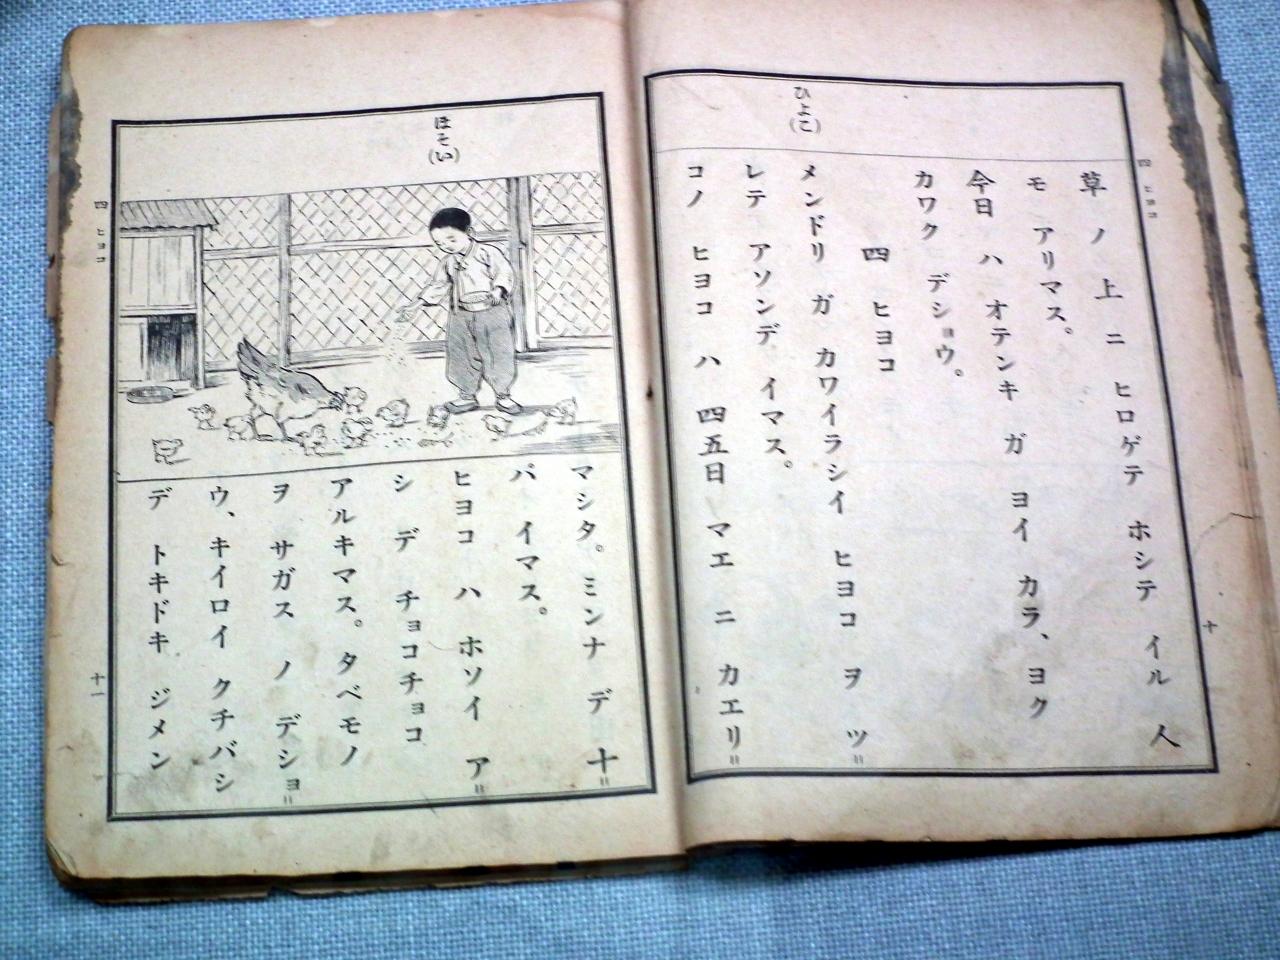 四 ヒヨコ
十
ひよこ(こ)
草 ノ 上 ニ ヒロゲテ ホシテ イル 人
モ アリマス。
今日 ハ オテンキ ガ ヨイ カラ、ヨク
カワク デショウ。
四 ヒヨコ
メンドリ ガ カワイラシイ ヒヨコ ヲ ツ=
レテ アソンデ イマス。
コノ ヒヨコ ハ 四五日 マエ ニ カエリ=
ほそ(い)
マシタ。ミンナ デ 十=
パ イマス。
ヒヨコ ハ ホソイ ア=
シ デ チョコチョコ
アルキマス。タベモノ
ヲ サガス ノ デショ=
ウ、キイロイ クチバシ
デ トキドキ ジメン
四 ヒヨコ
十一